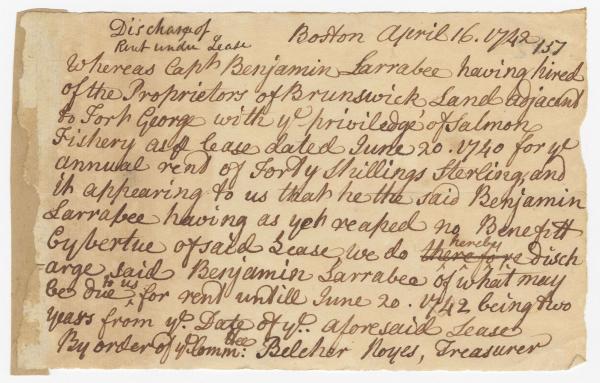 Discharge of
Rent under Lease
Boston April 16. 1742
157
Whereas Capt. Benjamin Larrabee having hired
of the Proprietors of Brunswick Land adjacent
to Fort George with ye. priviledge of Salmon
Fishery as Lease dated June 20. 1740 for ye
annual rent of Forty Shillings Sterling, and
it appearing to us that he the said Benjamin
Larrabee having as yet reaped no Benefitt
by vertue of said Lease, we do hereby disch
arge said Benjamin Larrabee of what may
be due to us for rent untill June 20. 1742 being two
years from ye. Date of ye. aforesaid Lease
By order of ye. Commtee: Belcher Noyes, Treasurer